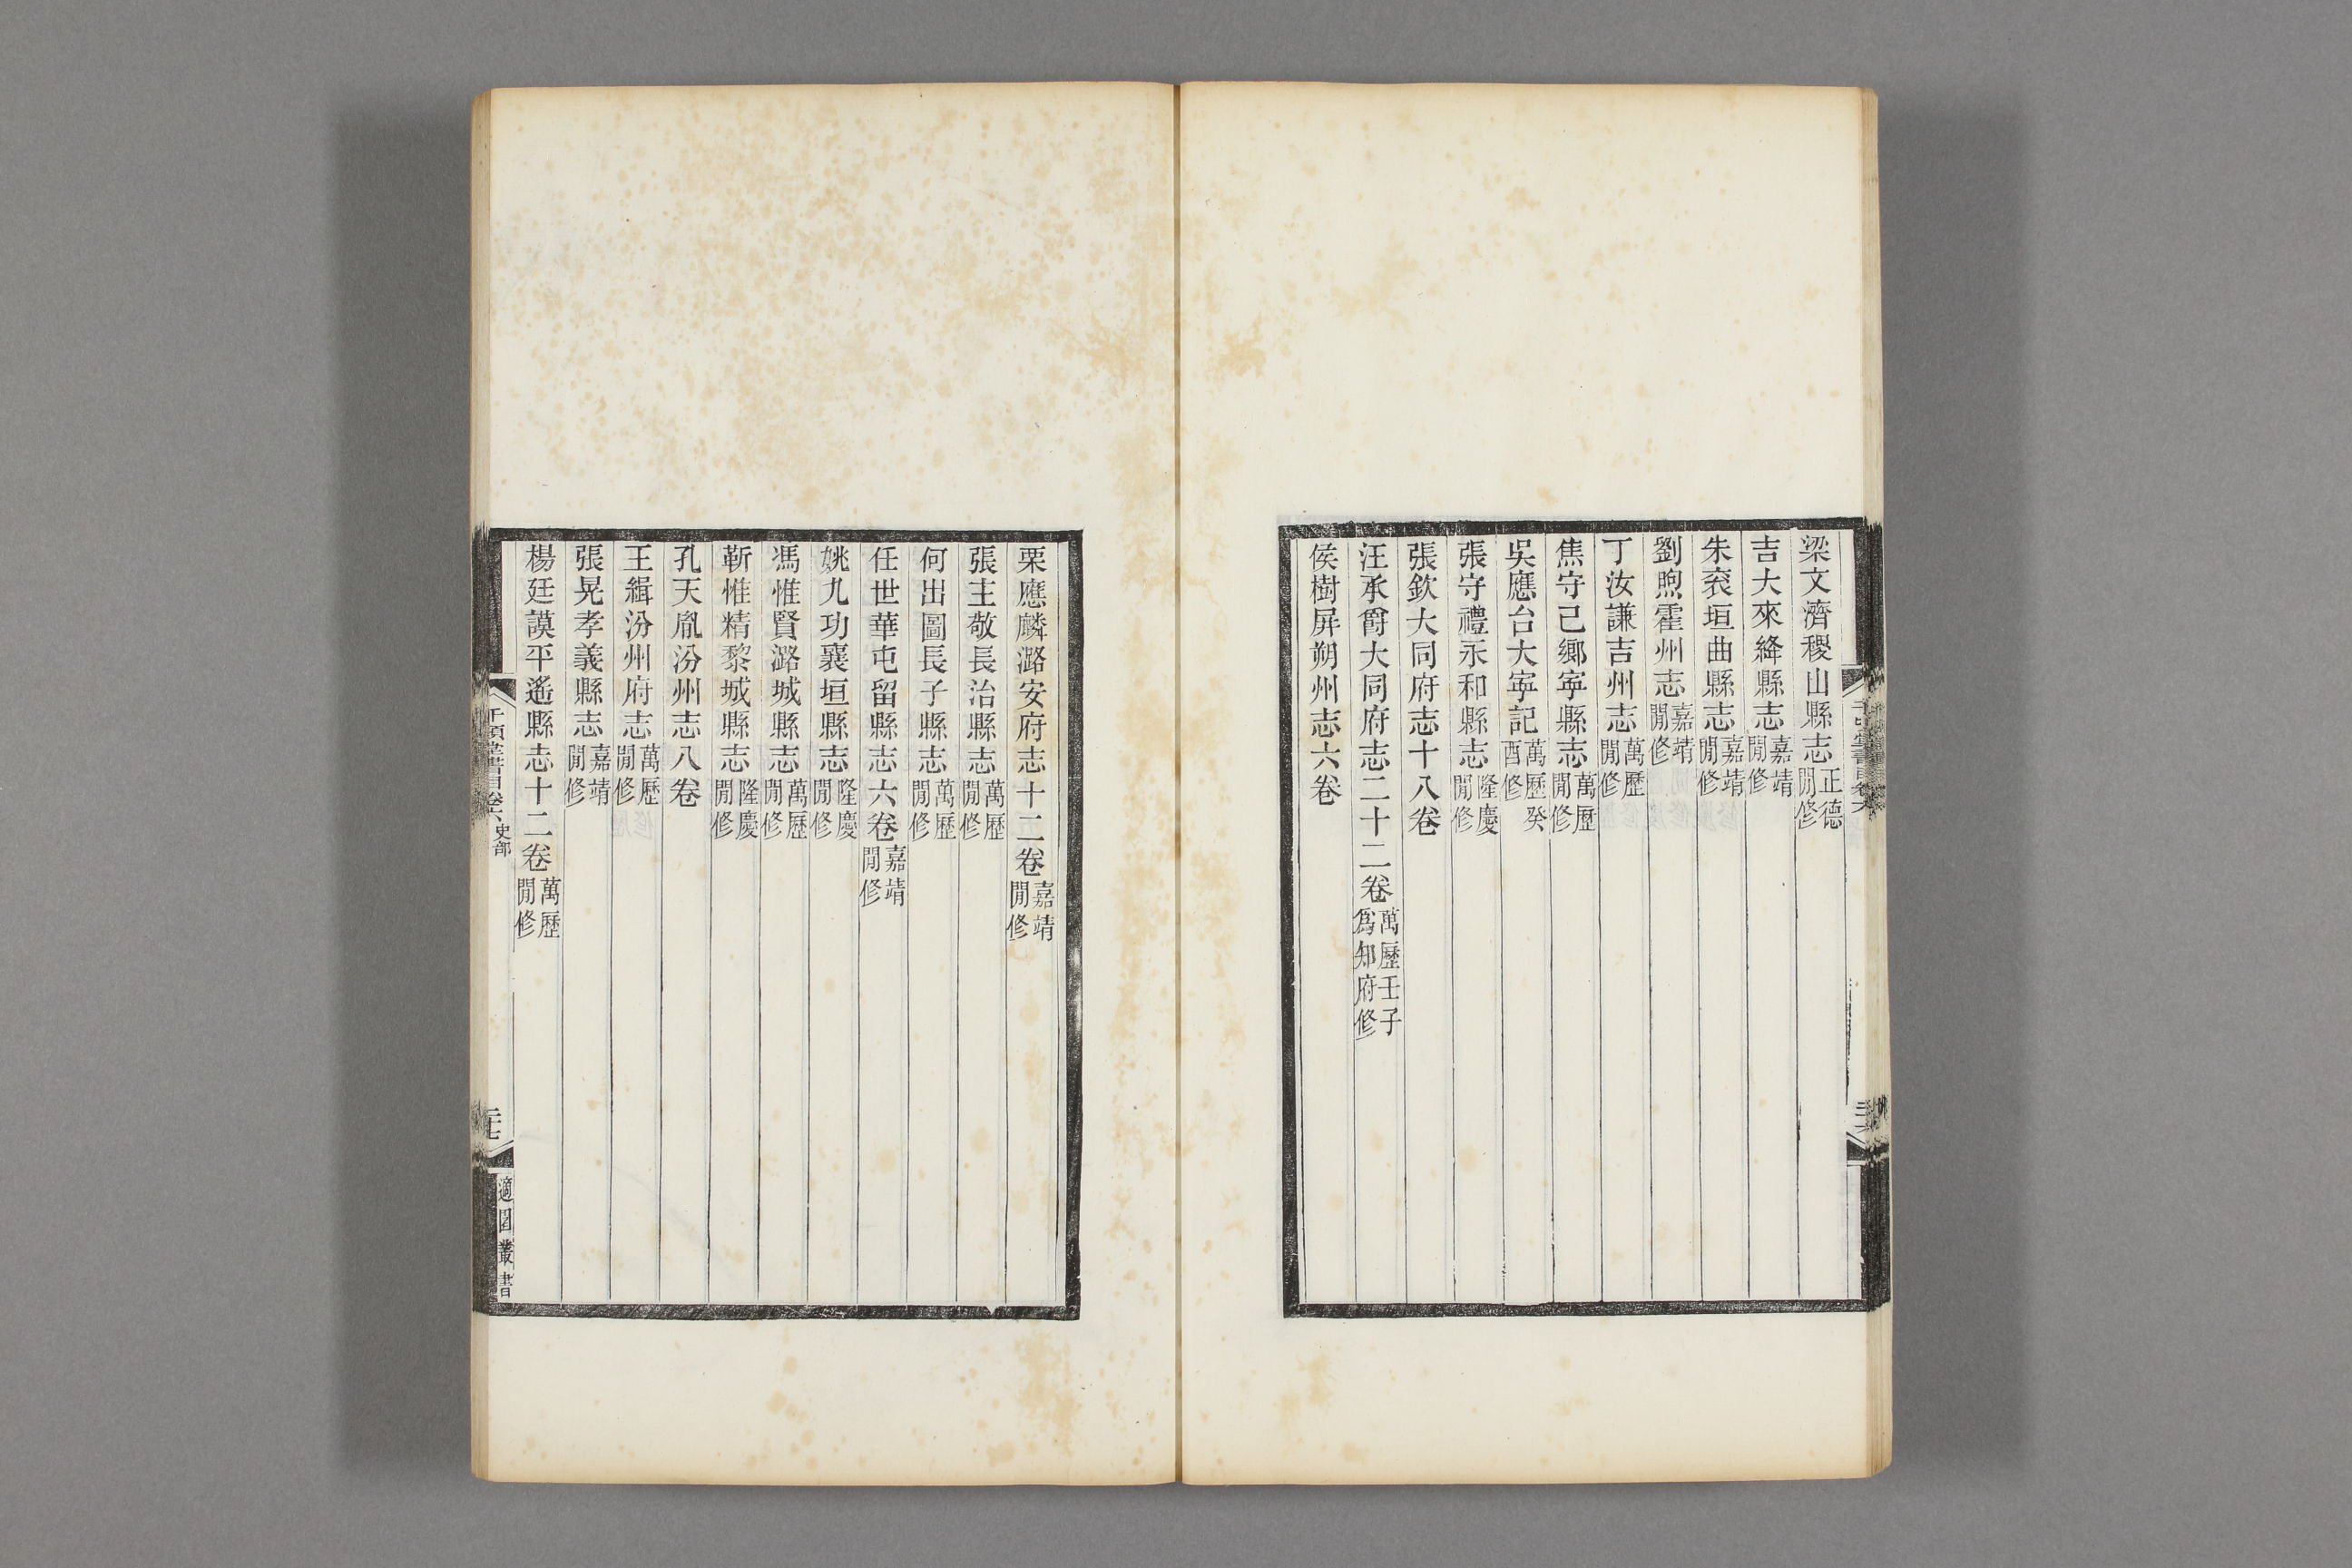 梁文濟稷山縣志正德閒修
吉大來絳縣志嘉靖閒修
朱衮垣曲縣志嘉靖閒修
劉煦霍州志嘉靖閒修
丁汝謙吉州志萬歷閒修
焦守己鄉寧縣志萬歷閒修
吳應台大寧記萬歷癸酉修
張守禮永和縣志隆慶閒修
張欽大同府志十八卷
汪承爵大同府志二十二卷萬歷壬子爲知府修
侯樹屏朔州志六卷
栗應麟潞安府志十二卷嘉靖閒修
張主敬長治縣志萬歷閒修
何出圖長子縣志萬歷閒修
任世華屯留縣志六卷嘉靖閒修
姚九功襄垣縣志隆慶閒修
馮惟賢潞城縣志萬歷閒修
靳惟精黎城縣志隆慶閒修
孔天胤汾州志八卷
王緝汾州府志萬歷閒修
張晃孝義縣志嘉靖閒修
楊廷謨平遙縣志十二卷萬歷閒修
千頃堂書目卷六 史部
適園叢書